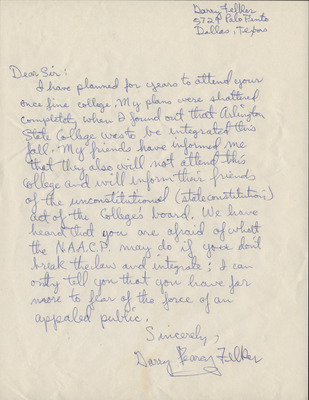 Darry Felker
5724 Palo Pinto
Dallas, Texas
Dear Sir:
I have planned for years to attend your
once fine college. My plans were shattered
completely when I found out that Arlington
State College was to be integrated this
fall. My friends have informed me
that they also will not attend this
college and will inform their friends
of the unconstitutional (state constitution)
act of the College's board. We have
heard that you are afraid of what
the N.A.A.C.P. may do if you don't
break the law and integrate; I can
only tell you that you have far
more to fear of the force of an
appealed public.
Sincerely,
Darry Felker